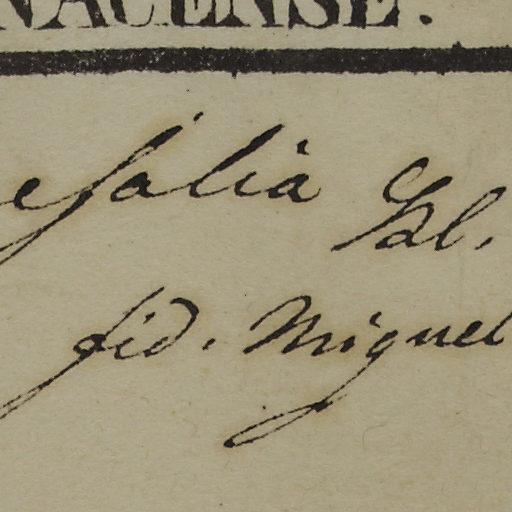 NACENSE.
esalia Gal.
fid. Miguel